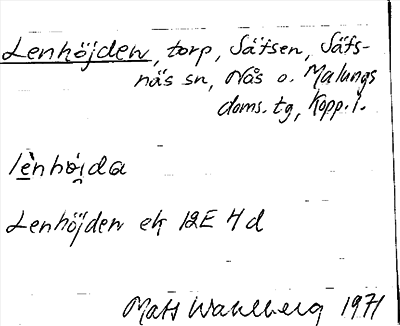 Lenhöjden, torp, Säfsen, Säfs-
näs sn, Nås o. Malungs
doms. tg, Kopp. l.
lènhöi̯da
Lenhöjden ek 12E 4d
Mats Wahlberg 1971